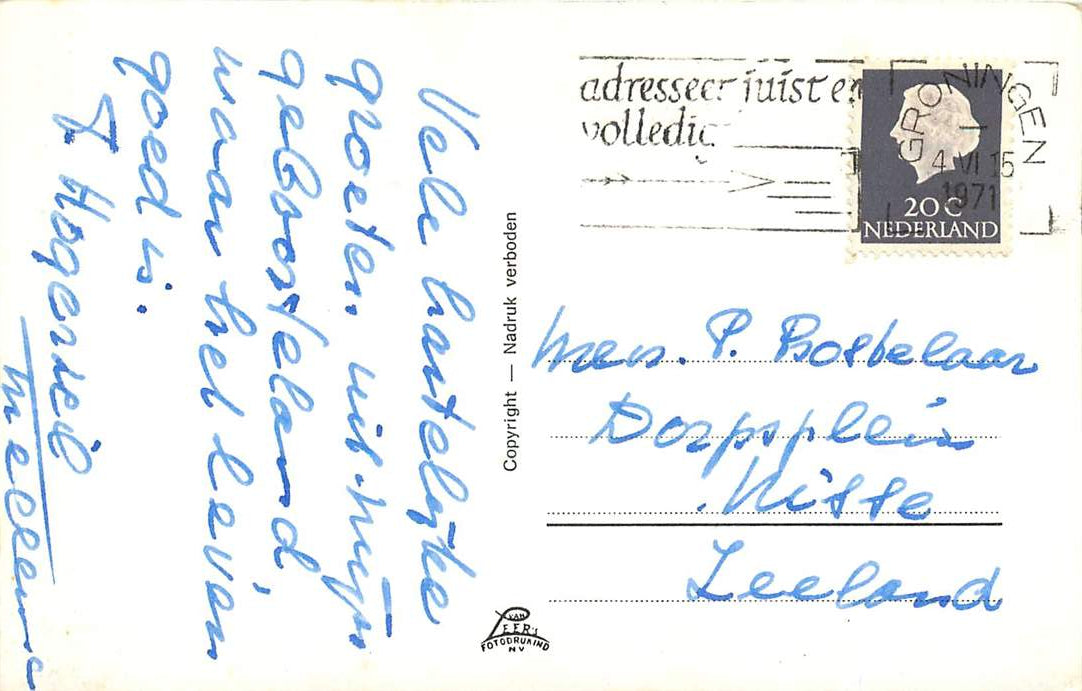 Vele hartelyke
groeten uit myn
geboorteland
waar het leven
goed is.
adresseer juist en
volledig
GRONINGEN
4 VI 15
1971
20 C
NEDERLAND
Copyright — Nadruk verboden
Mevr. P. Bosselaar
Dorpsplein
Nisse
Zeeland
VAN
LEER'S
FOTODRUKIND
NV